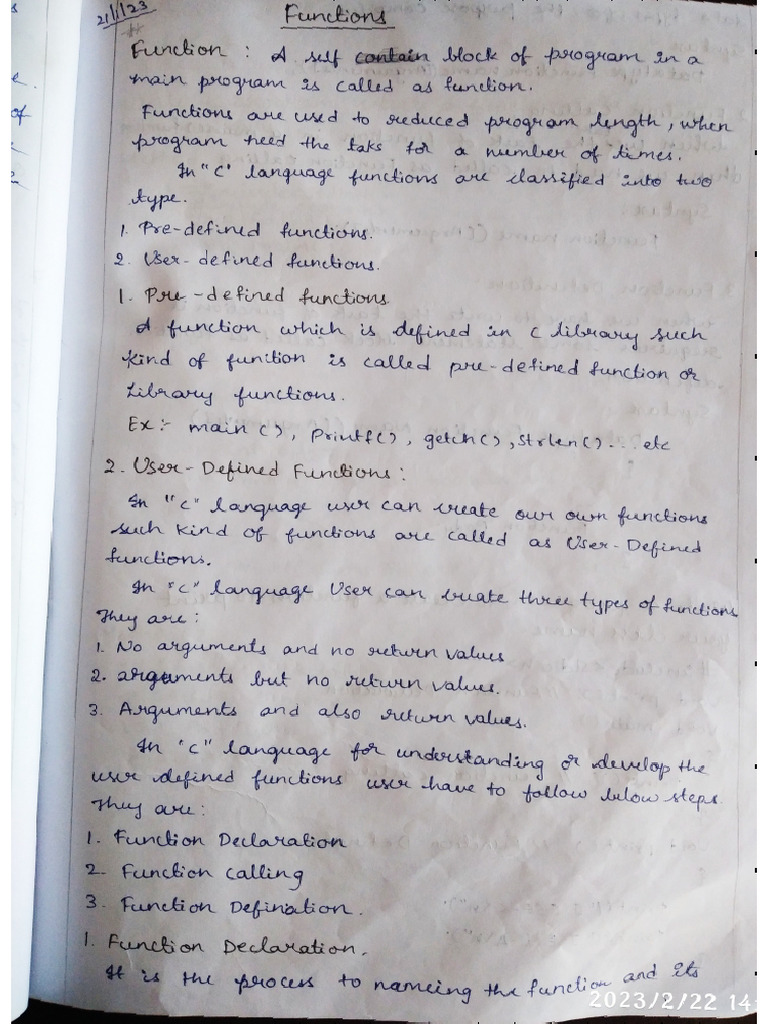 21/1/23
Functions
Function : A self contain block of program in a
main program is called as function.
Functions are used to reduced program length, when
program need the taks for a number of times.
In "C" language functions are classified into two
type.
1. Pre-defined functions.
2. User-defined functions.
1. Pre-defined functions
A function which is defined in C library such
kind of function is called pre-defined function or
Library functions.
Ex:- main(), Printf(), getch(), strlen()... etc
2. User-Defined Functions:
In "C" language user can create our own functions
such kind of functions are called as User-Defined
functions.
In "C" language User can create three types of functions
They are:
1. No arguments and no return values
2. arguments but no return values.
3. Arguments and also return values.
In "C" language for understanding or develop the
user defined functions user have to follow below steps.
They are:
1. Function Declaration
2. Function calling
3. Function Defination.
1. Function Declaration.
It is the process to nameing the function and its
2023/2/22 14